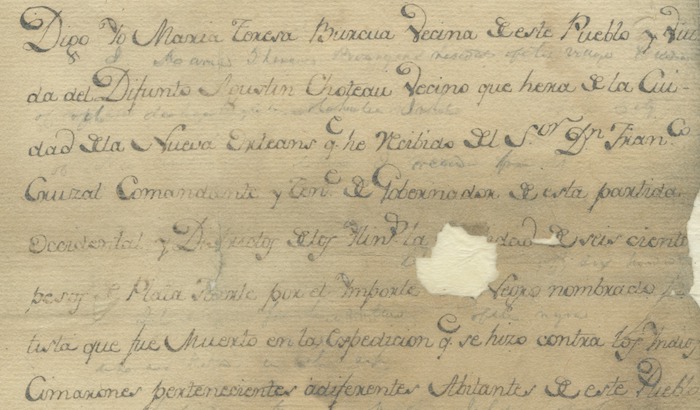 Digo Yo Maria Teresa Burcua Vecina de este Pueblo y Viu
da del Difunto Agustin Choteau Vecino que hera de la Ciu-
dad de la Nueva Orleans q.e he Recibido del S.or D.n Fran.co
Cruzal Comandante y Ten.e de Gobernador de esta partida
Occidental y Distrectos de los Ylin.s la dad de seis ciento
pesos de Plata fuerte por el Importe Negro nombrado
tista que fue Muerto en la Expedicion q.e se hizo contra los Indios
Cimarones pertenecientes a diferentes Abitantes de este Pueblo